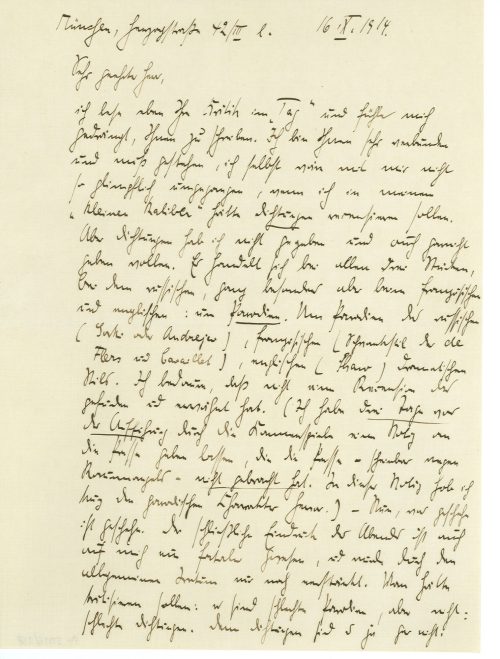 München, Herzogstraße 42/III l. 16.X.1914.
Sehr geehrter Herr,
ich lese eben Ihre Kritik im „Tag“ und fühle mich
gedrängt, Ihnen zu schreiben. Ich bin Ihnen sehr verbunden
und muß gestehen, ich selbst wäre mit mir nicht
so glimpflich umgegangen, wenn ich in meinem
„kleinen Kaliber“ hätte Dichtungen rezensieren sollen.
Aber Dichtungen hab ich nicht gegeben und auch gar nicht
geben wollen. Es handelt sich bei allen drei Stücken,
bei dem russischen, ganz besonders aber beim französischen
und englischen: um Parodien. Um Parodien des russischen
(Gorki oder Andrejew), französischen (Schwankstil der de
Flers und Caavallet), englischen (Shaw) dramatischen
Stils. Ich bedaure, daß nicht ein Rezensent das
gefunden und erwähnt hat. (Ich habe drei Tage vor
der Aufführung durch die Kammerspiele eine Notiz an
die Presse geben lassen, die die Presse – scheinbar wegen
Raummangels – nicht gebracht hat. In dieser Notiz hob ich
den parodischen Charakter hervor.) – Nun, was geschehn
ist geschehn. Der schließliche Eindruck des Abends ist auch
auf mich ein fataler gewesen, und wurde durch den
allgemeinen Irrtum nur noch verstärkt. Man hätte
kritisieren sollen: es sind schlechte Parodien, aber nicht:
schlechte Dichtungen. Denn Dichtungen sind es ja gar nicht!